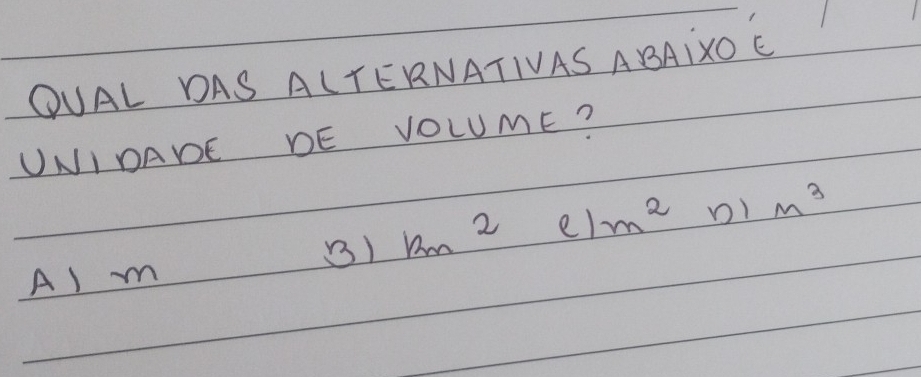 QUAL DAS ALTERNATIVAS ABAIXO É
UNIDADE DE VOLUME?
A) m B) km² C) m² D) m³